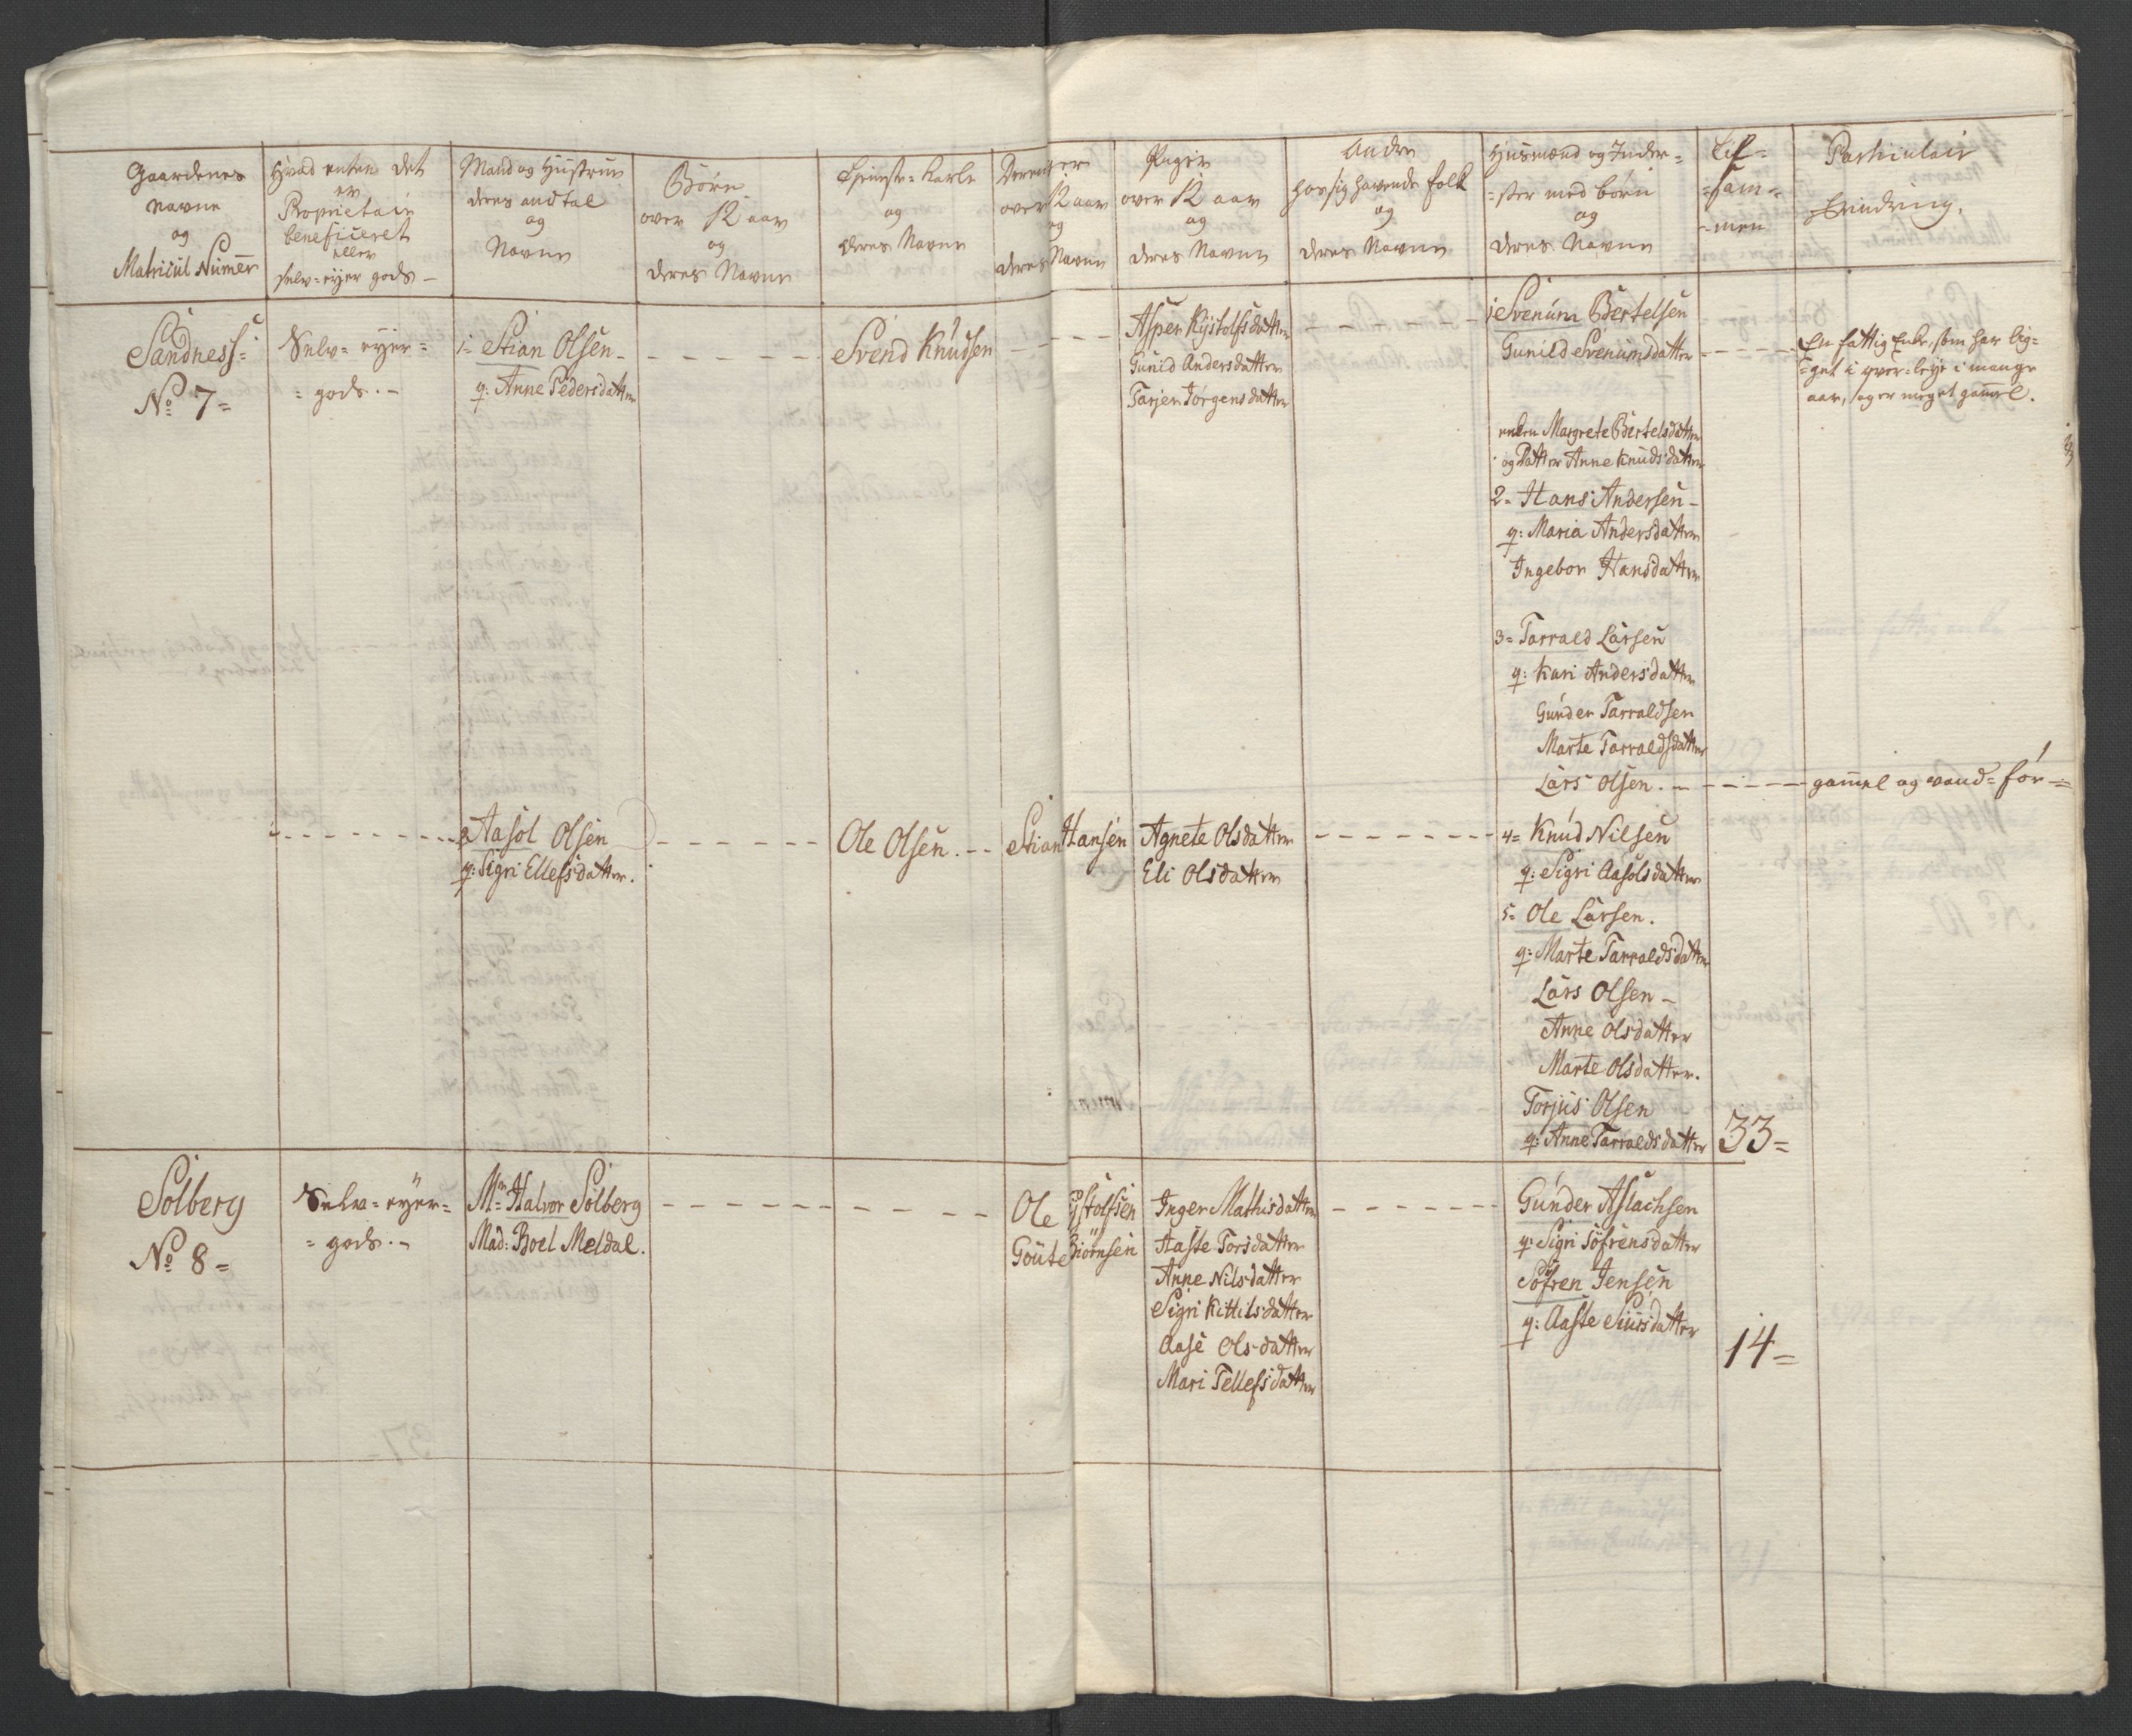 Gaardenes
Navne
og
Matricul Numer
Hvad enten det
er
Proprietair
beneficeret
eller
selv=eyer gods -
Mand og Hustrue
deres andtal
og
Navne
Børn
over 12 aar
og
deres Navne
Tieniste-Karle
og
deres Navne
Drenger
over 12 aar
og
deres Navne
Piger
over 12 aar
og
deres Navne
Andre
hos sig havende folk
og
deres Navne
Husmænd og Inder=
=ster med børn
og
deres Navne
Til=
=sam=
=men
Particulair
Erindring.
Sandness=
No 7=
Selv=eyer=
=gods.-
1= Stian Olsen-
q: Anne Pedersdatter
Svend Knudsen
Asper Kystolfsdatter
Gunild Andersdatter
Tarjer Jørgensdatter
1 Svenúm Bertelsen
Gunild Svenúmsdatter
En fattig Enke, som har lig=
=get i qver=leye i mange
aar, og er meget gamel.
enken Margrete Bertelsdatter
og Datter Anne Knudsdatter
2= Hans Andersen-
q: Maria Andersdatter
Ingebor Hansdatter
3= Tarrald Larsen
q: Kari Andersdatter
Gúnder Tarraldsen
Marte Tarraldsdatter
Lars Olsen.- gamel og vand=før=
2 Aasol Olsen
q: Sigri Ellefsdatter.
Ole Olsen.
Stian Hansen
Agnete Olsdatter
Eli Olsdatter
4= Knúd Nilsen
q: Sigri Aasolsdatter
5= Ole Larsen.
q: Marte Tarraldsdatter
Lars Olsen-
Anne Olsdatter
Marte Olsdatter.
Torjus Olsen
q: Anne Tarraldsdatter
33=
Solberg
No 8=
Selv=eyer=
=gods.-
Mr Halvor Solberg
Mad: Boel Meldal.
Ole Kystolfsen
Goute Biørnsen
Inger Mathisdatter
Aaste Torsdatter
Anne Nilsdatter
Sigri Kittilsdatter
Aase Ols-datter
Mari Tellefsdatter
Gúnder Aslachsen
q: Sigri Søfrensdatter
Søfren Jensen
q: Aaste Siursdatter
14=